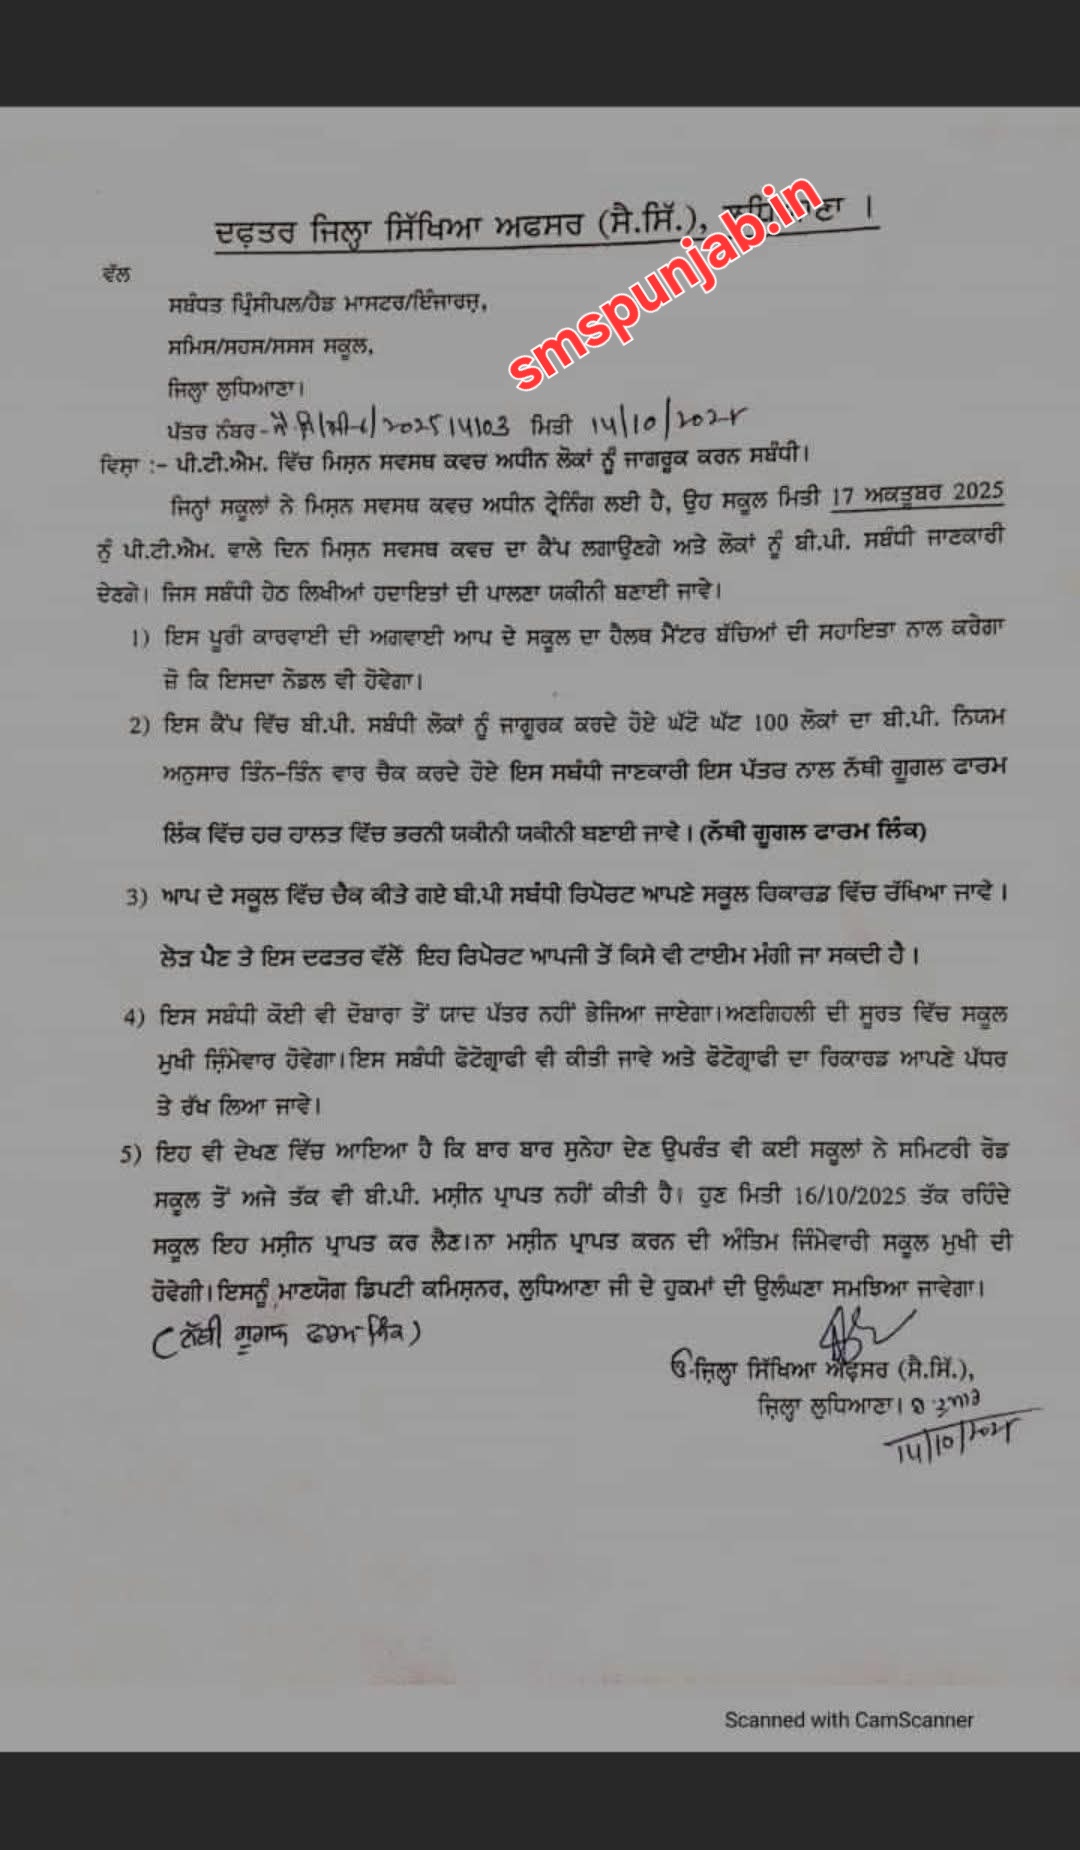 ਦਫ਼ਤਰ ਜਿਲ੍ਹਾ ਸਿੱਖਿਆ ਅਫਸਰ (ਸੈ.ਸਿੱ.), ਲੁਧਿਆਣਾ ।
smspunjab.in
ਵੱਲ
ਸਬੰਧਤ ਪ੍ਰਿੰਸੀਪਲ/ਹੈਡ ਮਾਸਟਰ/ਇੰਜਾਰਜ਼,
ਸਮਿਸ/ਸਹਸ/ਸਸਸ ਸਕੂਲ,
ਜਿਲ੍ਹਾ ਲੁਧਿਆਣਾ।
ਪੱਤਰ ਨੰਬਰ- 202514103 ਮਿਤੀ 14/10/2025
ਵਿਸ਼ਾ :- ਪੀ.ਟੀ.ਐਮ. ਵਿੱਚ ਮਿਸ਼ਨ ਸਵਸਥ ਕਵਚ ਅਧੀਨ ਲੋਕਾਂ ਨੂੰ ਜਾਗਰੂਕ ਕਰਨ ਸਬੰਧੀ।
ਜਿਨ੍ਹਾਂ ਸਕੂਲਾਂ ਨੇ ਮਿਸ਼ਨ ਸਵਸਥ ਕਵਚ ਅਧੀਨ ਟ੍ਰੇਨਿੰਗ ਲਈ ਹੈ, ਉਹ ਸਕੂਲ ਮਿਤੀ 17 ਅਕਤੂਬਰ 2025
ਨੂੰ ਪੀ.ਟੀ.ਐਮ. ਵਾਲੇ ਦਿਨ ਮਿਸ਼ਨ ਸਵਸਥ ਕਵਚ ਦਾ ਕੈਂਪ ਲਗਾਉਣਗੇ ਅਤੇ ਲੋਕਾਂ ਨੂੰ ਬੀ.ਪੀ. ਸਬੰਧੀ ਜਾਣਕਾਰੀ
ਦੇਣਗੇ। ਜਿਸ ਸਬੰਧੀ ਹੇਠ ਲਿਖੀਆਂ ਹਦਾਇਤਾਂ ਦੀ ਪਾਲਣਾ ਯਕੀਨੀ ਬਣਾਈ ਜਾਵੇ।
1) ਇਸ ਪੂਰੀ ਕਾਰਵਾਈ ਦੀ ਅਗਵਾਈ ਆਪ ਦੇ ਸਕੂਲ ਦਾ ਹੈਲਥ ਮੈਂਟਰ ਬੱਚਿਆਂ ਦੀ ਸਹਾਇਤਾ ਨਾਲ ਕਰੇਗਾ
ਜੋ ਕਿ ਇਸਦਾ ਨੋਡਲ ਵੀ ਹੋਵੇਗਾ।
2) ਇਸ ਕੈਂਪ ਵਿੱਚ ਬੀ.ਪੀ. ਸਬੰਧੀ ਲੋਕਾਂ ਨੂੰ ਜਾਗੂਰਕ ਕਰਦੇ ਹੋਏ ਘੱਟੋ ਘੱਟ 100 ਲੋਕਾਂ ਦਾ ਬੀ.ਪੀ. ਨਿਯਮ
ਅਨੁਸਾਰ ਤਿੰਨ-ਤਿੰਨ ਵਾਰ ਚੈਕ ਕਰਦੇ ਹੋਏ ਇਸ ਸਬੰਧੀ ਜਾਣਕਾਰੀ ਇਸ ਪੱਤਰ ਨਾਲ ਨੱਥੀ ਗੂਗਲ ਫਾਰਮ
ਲਿੰਕ ਵਿੱਚ ਹਰ ਹਾਲਤ ਵਿੱਚ ਭਰਨੀ ਯਕੀਨੀ ਯਕੀਨੀ ਬਣਾਈ ਜਾਵੇ। (ਨੱਥੀ ਗੂਗਲ ਫਾਰਮ ਲਿੰਕ)
3) ਆਪ ਦੇ ਸਕੂਲ ਵਿੱਚ ਚੈਕ ਕੀਤੇ ਗਏ ਬੀ.ਪੀ ਸਬੰਧੀ ਰਿਪੋਰਟ ਆਪਣੇ ਸਕੂਲ ਰਿਕਾਰਡ ਵਿੱਚ ਰੱਖਿਆ ਜਾਵੇ ।
ਲੋੜ ਪੈਣ ਤੇ ਇਸ ਦਫਤਰ ਵੱਲੋਂ ਇਹ ਰਿਪੋਰਟ ਆਪਜੀ ਤੋਂ ਕਿਸੇ ਵੀ ਟਾਈਮ ਮੰਗੀ ਜਾ ਸਕਦੀ ਹੈ ।
4) ਇਸ ਸਬੰਧੀ ਕੋਈ ਵੀ ਦੋਬਾਰਾ ਤੋਂ ਯਾਦ ਪੱਤਰ ਨਹੀਂ ਭੇਜਿਆ ਜਾਏਗਾ।ਅਣਗਿਹਲੀ ਦੀ ਸੂਰਤ ਵਿੱਚ ਸਕੂਲ
ਮੁਖੀ ਜ਼ਿੰਮੇਵਾਰ ਹੋਵੇਗਾ।ਇਸ ਸਬੰਧੀ ਫੋਟੋਗ੍ਰਾਫੀ ਵੀ ਕੀਤੀ ਜਾਵੇ ਅਤੇ ਫੋਟੋਗ੍ਰਾਫੀ ਦਾ ਰਿਕਾਰਡ ਆਪਣੇ ਪੱਧਰ
ਤੇ ਰੱਖ ਲਿਆ ਜਾਵੇ।
5) ਇਹ ਵੀ ਦੇਖਣ ਵਿੱਚ ਆਇਆ ਹੈ ਕਿ ਬਾਰ ਬਾਰ ਸੁਨੇਹਾ ਦੇਣ ਉਪਰੰਤ ਵੀ ਕਈ ਸਕੂਲਾਂ ਨੇ ਸਮਿਟਰੀ ਰੋਡ
ਸਕੂਲ ਤੋਂ ਅਜੇ ਤੱਕ ਵੀ ਬੀ.ਪੀ. ਮਸ਼ੀਨ ਪ੍ਰਾਪਤ ਨਹੀਂ ਕੀਤੀ ਹੈ। ਹੁਣ ਮਿਤੀ 16/10/2025 ਤੱਕ ਰਹਿੰਦੇ
ਸਕੂਲ ਇਹ ਮਸ਼ੀਨ ਪ੍ਰਾਪਤ ਕਰ ਲੈਣ।ਨਾ ਮਸ਼ੀਨ ਪ੍ਰਾਪਤ ਕਰਨ ਦੀ ਅੰਤਿਮ ਜਿੰਮੇਵਾਰੀ ਸਕੂਲ ਮੁਖੀ ਦੀ
ਹੋਵੇਗੀ।ਇਸਨੂੰ ਮਾਣਯੋਗ ਡਿਪਟੀ ਕਮਿਸ਼ਨਰ, ਲੁਧਿਆਣਾ ਜੀ ਦੇ ਹੁਕਮਾਂ ਦੀ ਉਲੰਘਣਾ ਸਮਝਿਆ ਜਾਵੇਗਾ।
(ਨੱਥੀ ਗੂਗਲ ਫਾਰਮ ਲਿੰਕ)
ਓ-ਜ਼ਿਲ੍ਹਾ ਸਿੱਖਿਆ ਅਫ਼ਸਰ (ਸੈ.ਸਿੱ.),
ਜ਼ਿਲ੍ਹਾ ਲੁਧਿਆਣਾ।
14/10/2025
Scanned with CamScanner